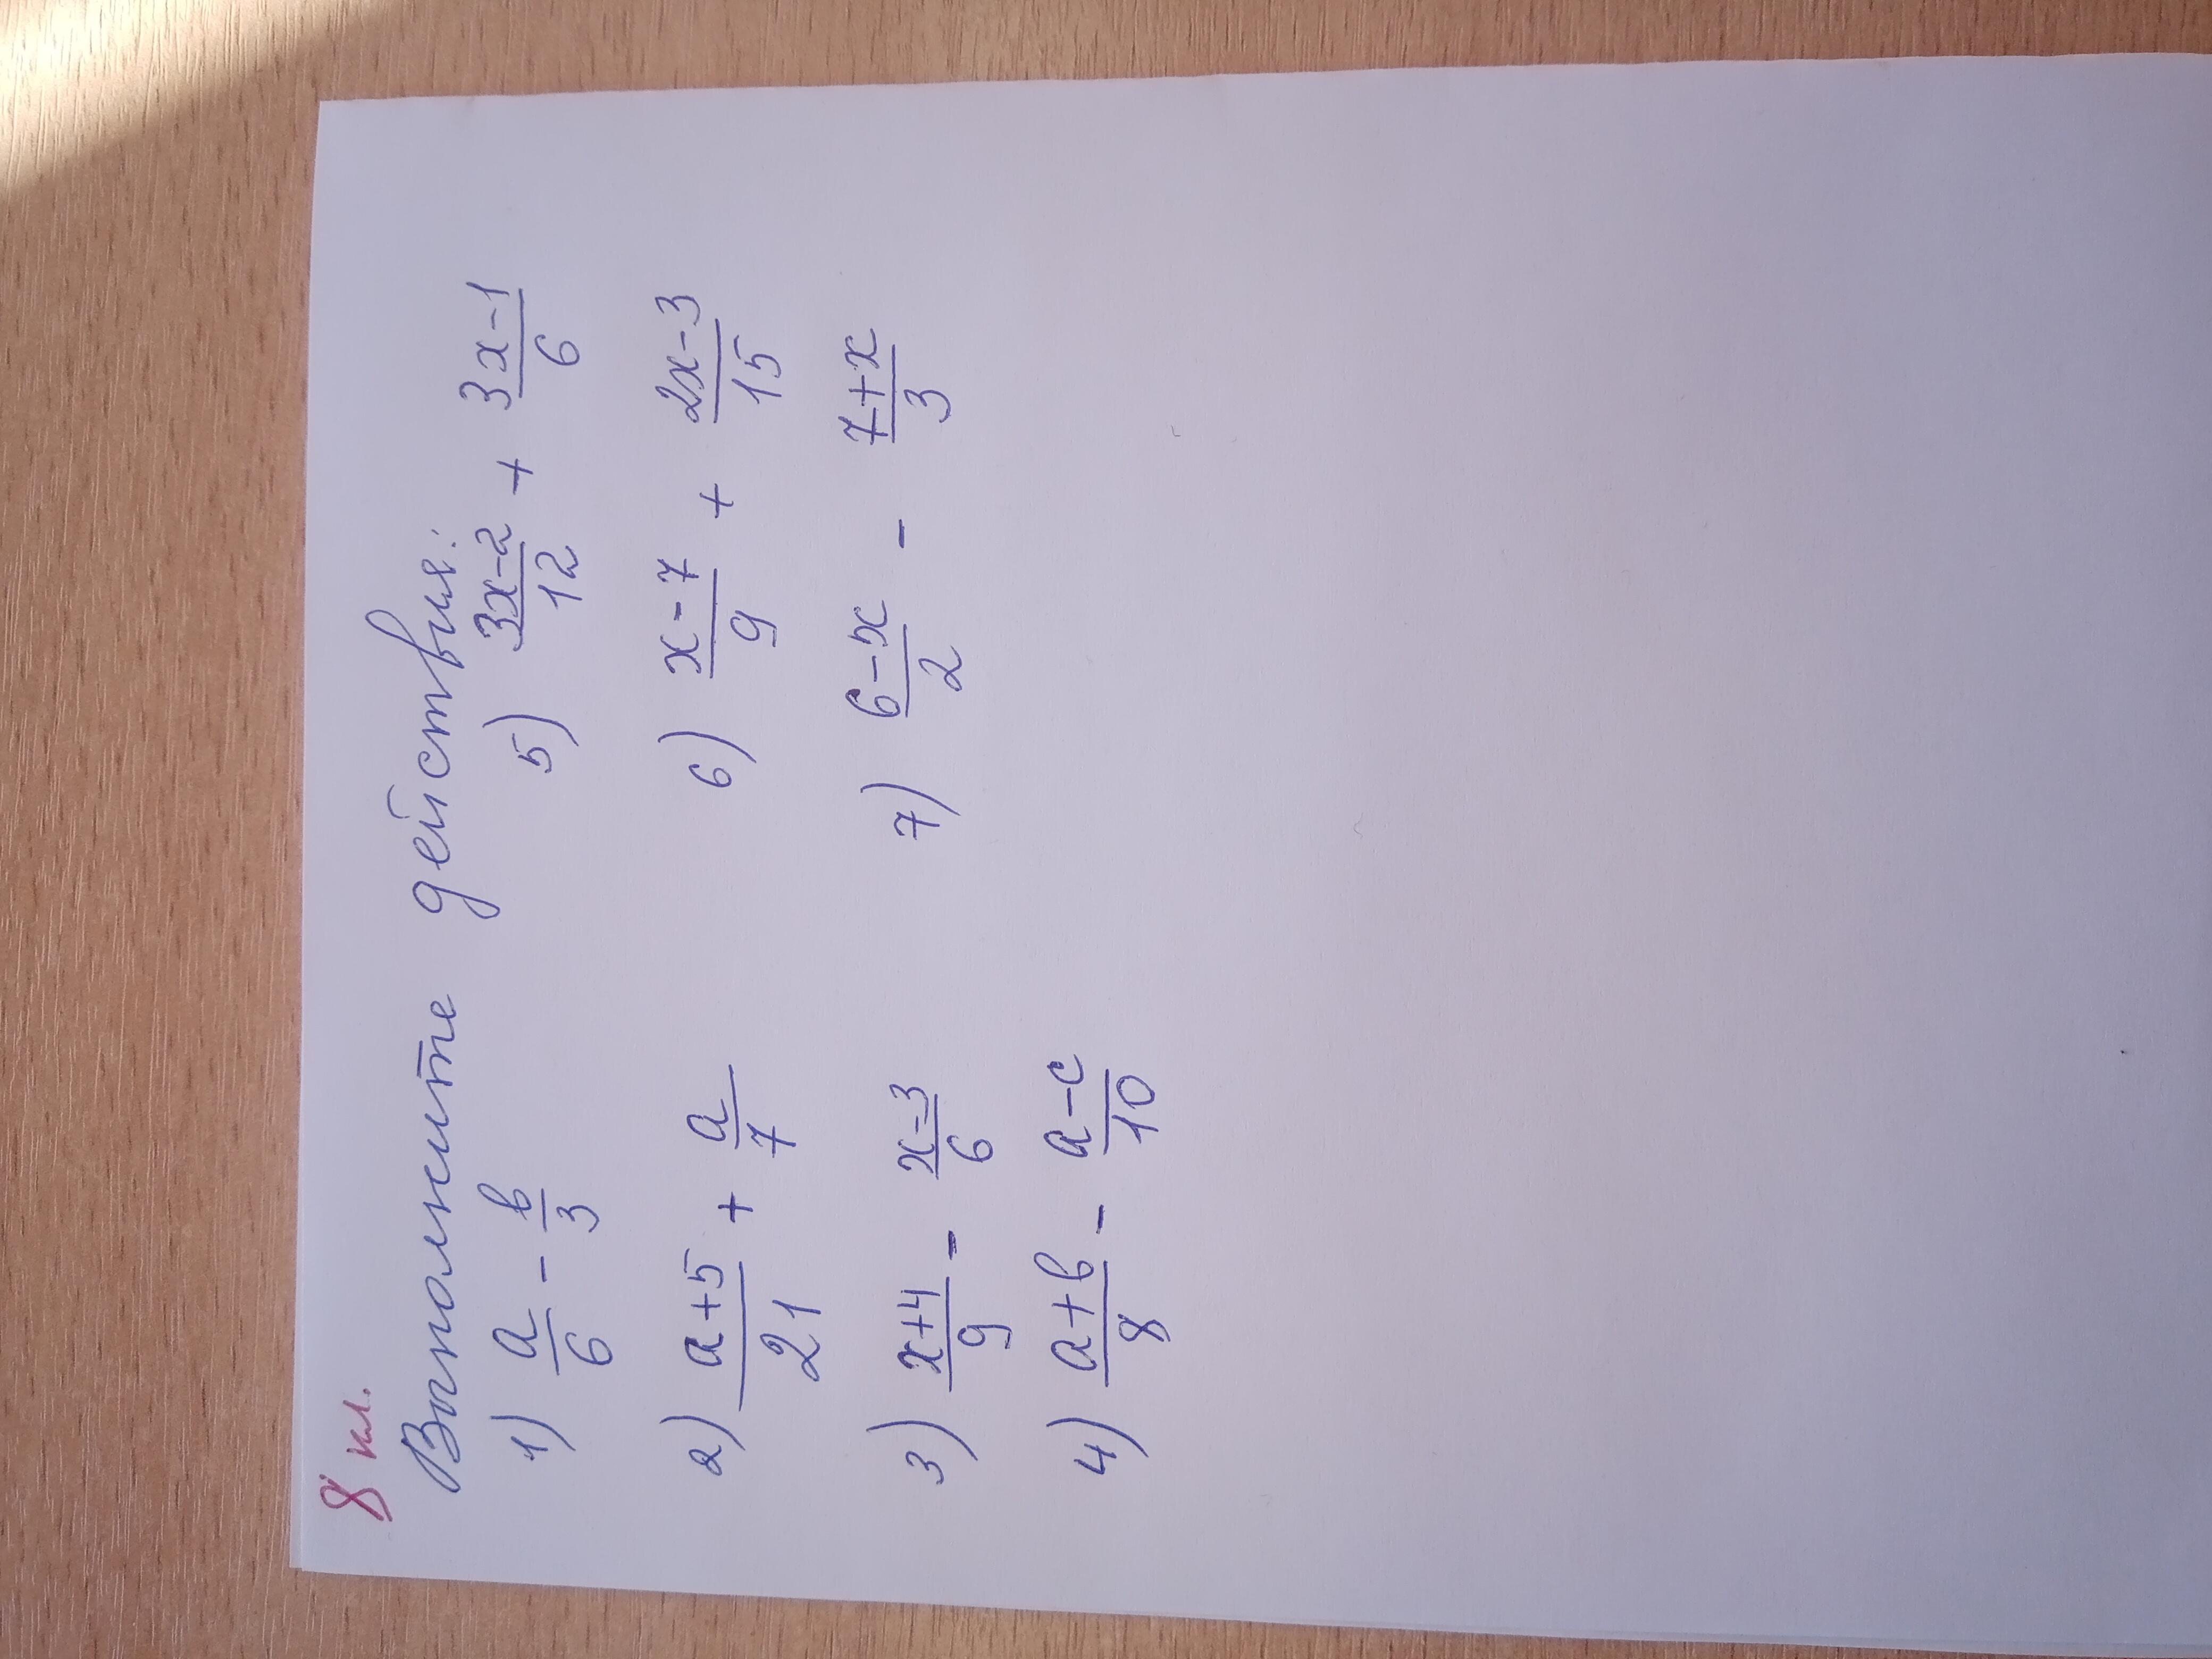 8 кл.
Выполните действия:
1) a/6 - b/3
2) a+5/21 + a/7
3) x+4/9 - x-3/6
4) a+b/8 - a-c/10
5) 3x-2/12 + 3x-1/6
6) x-7/9 + 2x-3/15
7) 6-x/2 - 7+x/3